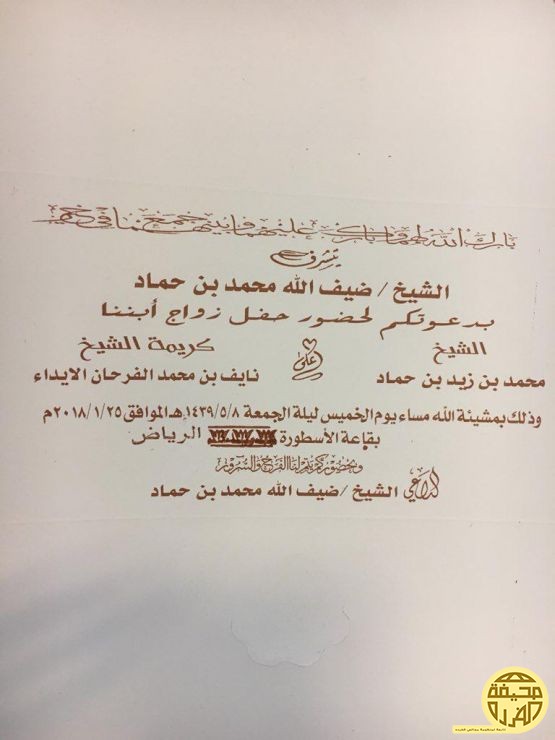 بارك الله لهما وبارك عليهما وجمع بينهما في خير
يتشرف
الشيخ / ضيف الله محمد بن حماد
بدعوتكم لحضور حفل زواج أبننا
الشيخ
محمد بن زيد بن حماد
على
كريمة الشيخ
نايف بن محمد الفرحان الايداء
وذلك بمشيئة الله مساء يوم الخميس ليلة الجمعة ١٤٣٩/٥/٨هـ الموافق ٢٠١٨/١/٢٥م
بقاعة الأسطورة الرياض
وبحضوركم يتم لنا الفرح والسرور
الداعي الشيخ / ضيف الله محمد بن حماد
صحيفة